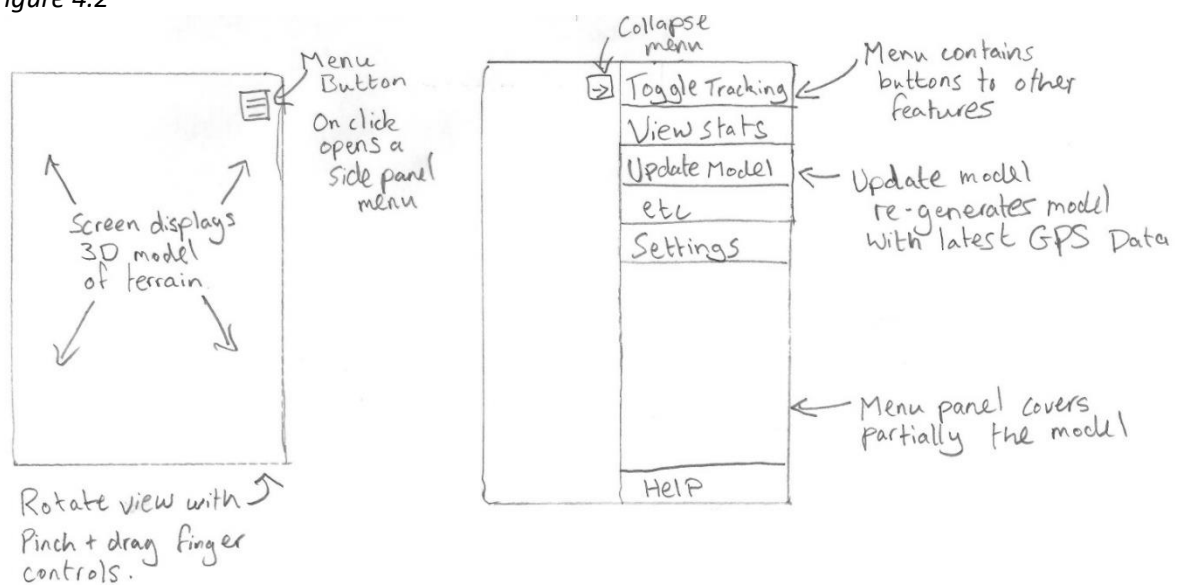 Figure 4.2
Menu
Button
On click
opens a
side panel
menu
Screen displays
3D model
of terrain.
Rotate view with
Pinch + drag finger
controls.
Collapse
menu
Toggle Tracking
View stats
Update Model
etc
Settings
Help
Menu contains
buttons to other
features
Update model
re-generates model
with latest GPS Data
Menu panel covers
partially the model